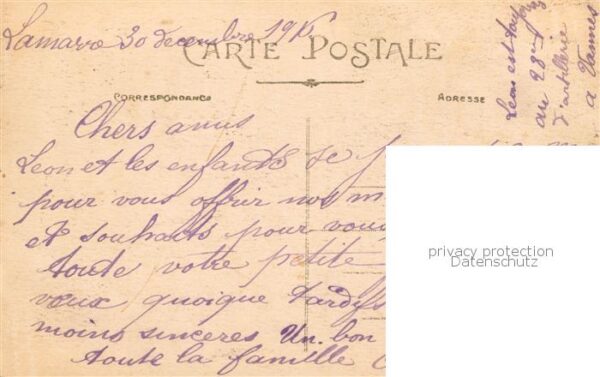 Lamarre 30 decembre 1915
CARTE POSTALE
CORRESPONDANCE
ADRESSE
Chers amis
Leon et les enfants se
pour vous offrir nos m
et souhaits pour vous
toute votre petite
vœux quoique tardifs
moins sinceres Un bon
toute la famille
Leon est
au 28em
d'artillerie
a Vannes
privacy protection
Datenschutz